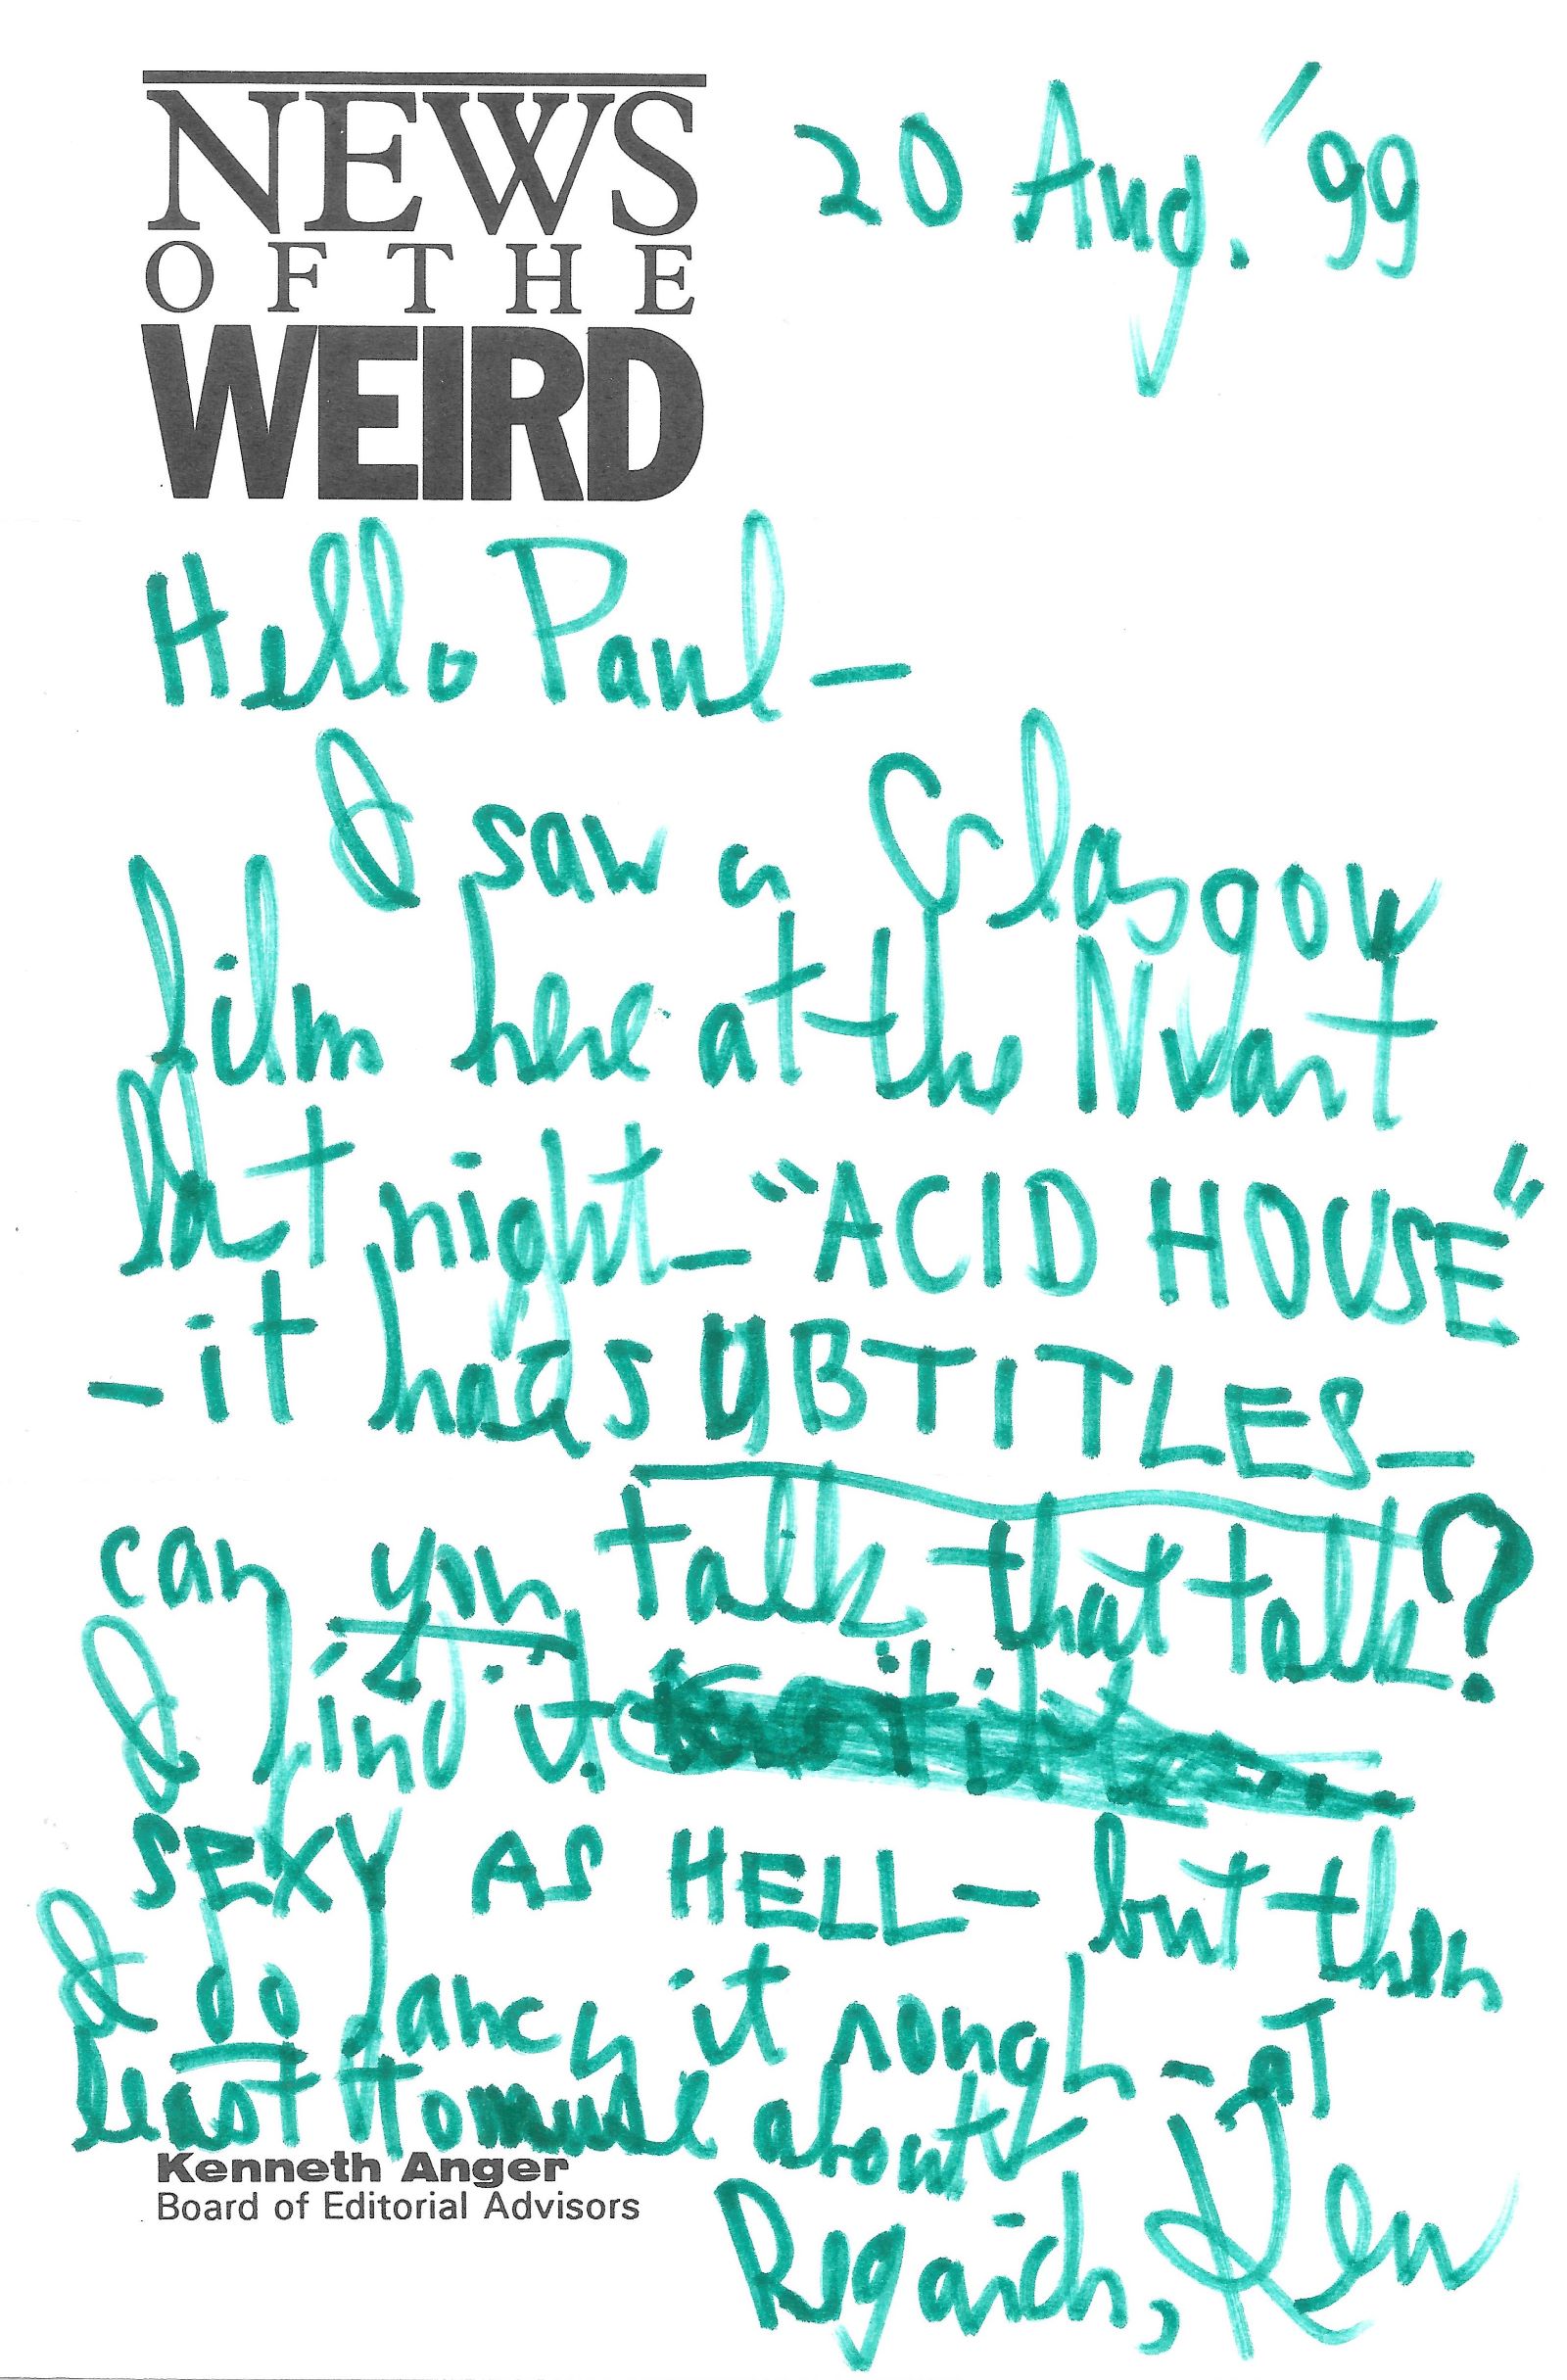 NEWS
OF THE
WEIRD
20 Aug. '99
Hello Paul —
I saw a Glasgow
film here at the Nuart
last night — "ACID HOUSE"
— it has SUBTITLES —
can you talk that talk?
I find it
SEXY AS HELL — but then
I do fancy it rough — at
least to muse about
Kenneth Anger
Board of Editorial Advisors
Regards, Ken